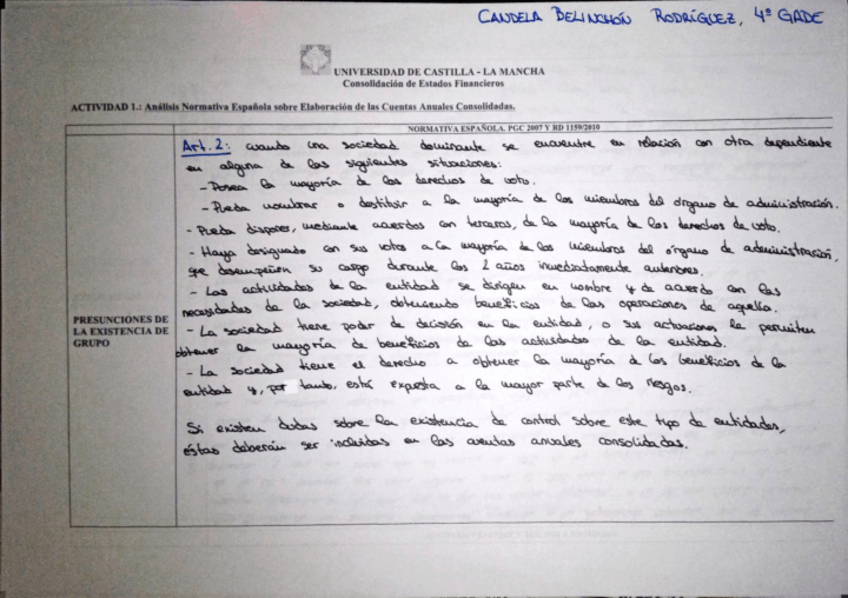 CANDELA BELINCHÓN RODRÍGUEZ, 4º GADE
UNIVERSIDAD DE CASTILLA - LA MANCHA
Consolidación de Estados Financieros
ACTIVIDAD 1.: Análisis Normativa Española sobre Elaboración de las Cuentas Anuales Consolidadas.
NORMATIVA ESPAÑOLA. PGC 2007 Y RD 1159/2010
PRESUNCIONES DE
LA EXISTENCIA DE
GRUPO
Art. 2: cuando una sociedad dominante se encuentre en relación con otra dependiente
en alguna de las siguientes situaciones:
- Posea la mayoría de los derechos de voto.
- Pueda nombrar o destituir a la mayoría de los miembros del órgano de administración.
- Pueda disponer, mediante acuerdos con terceros, de la mayoría de los derechos de voto.
- Haya designado con sus votos a la mayoría de los miembros del órgano de administración,
que desempeñen su cargo durante los 2 años inmediatamente anteriores.
- Las actividades de la entidad se dirigen en nombre y de acuerdo con las
necesidades de la sociedad, obteniendo beneficios de las operaciones de aquella.
- La sociedad tiene poder de decisión en la entidad, o sus actuaciones le permiten
obtener la mayoría de beneficios de las actividades de la entidad.
- La sociedad tiene el derecho a obtener la mayoría de los beneficios de la
entidad y, por tanto, está expuesta a la mayor parte de los riesgos.
Si existen dudas sobre la existencia de control sobre este tipo de entidades,
éstas deberán ser incluidas en las cuentas anuales consolidadas.